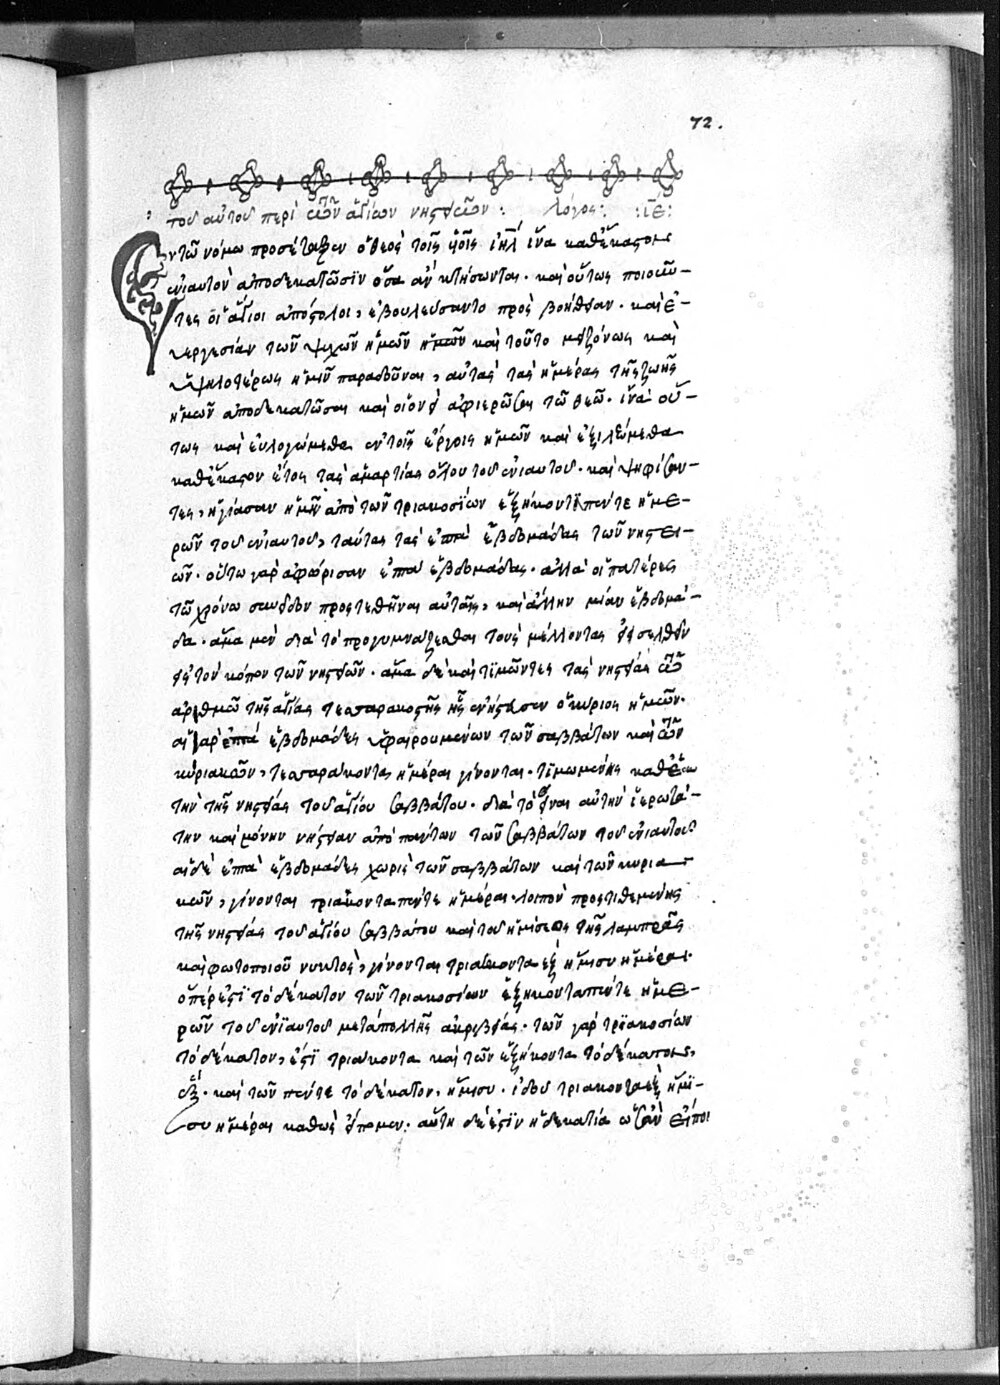 72.
τοῦ αὐτοῦ περὶ τῶν ἁγίων νηστειῶν : λόγος : ιε :
Ἐν τῶ νόμω προσέταξεν ὁ θεὸς τοῖς υἱοῖς ιηλ ἵνα καθέκαστον
ἐνιαυτὸν ἀποδεκατῶσιν ὅσα ἂν κτήσωνται· καὶ οὕτως ποιοῦν-
τες οἱ ἅγιοι ἀπόστολοι, ἐβουλεύσαντο πρὸς βοήθειαν· καὶ εὐ-
εργεσίαν τῶν ψυχῶν ἡμῶν ἡμῶν καὶ τοῦτο μειζόνως καὶ
ὑψηλοτέρως ἡμῖν παραδοῦναι, αὐτὰς τὰς ἡμέρας τῆς ζωῆς
ἡμῶν ἀποδεκατῶσαι καὶ οἱονεὶ ἀφιερῶσαι τῶ θεῶ· ἵνα οὕ-
τως καὶ εὐλογώμεθα ἐν τοῖς ἔργοις ἡμῶν καὶ ἐξιλεώμεθα
καθέκαστον ἔτος τὰς ἁμαρτίας ὅλου τοῦ ἐνιαυτοῦ· καὶ ψηφίσαν-
τες, ἡγίασαν ἡμῖν ἀπὸ τῶν τριακοσίων ἑξηκονταπέντε ἡμε-
ρῶν τοῦ ἐνιαυτοῦ, ταύτας τὰς ἑπτὰ ἑβδομάδας τῶν νηστει-
ῶν· οὕτω γὰρ ἀφώρισαν ἑπτὰ ἑβδομάδας· ἀλλὰ οἱ πατέρες
τῶ χρόνω συνεῖδον προστεθῆναι αὐταῖς, καὶ ἄλλην μίαν ἑβδομά-
δα· ἅμα μὲν διὰ τὸ προγυμνάζεσθαι τοὺς μέλλοντας εἰσελθεῖν
εἰς τὸν κόπον τῶν νηστειῶν· ἅμα δὲ καὶ τιμῶντες τὰς νηστείας τῶ
ἀριθμῶ τῆς ἁγίας τεσσαρακοστῆς ἧς ἐνήστευσεν ὁ κύριος ἡμῶν·
αἱ γὰρ ἑπτὰ ἑβδομάδες ὑφαιρουμένων τῶν σαββάτων καὶ τῶν
κυριακῶν, τεσσαράκοντα ἡμέραι γίνονται· τιμωμένης καθ' ἑαυ
τὴν τῆς νηστείας τοῦ ἁγίου σαββάτου· διὰ τὸ εἶναι αὐτὴν ἱερωτά-
την καὶ μόνην νήστειαν ἀπὸ πάντων τῶν σαββάτων τοῦ ἐνιαυτοῦ
αἱ δὲ ἑπτὰ ἑβδομάδες χωρὶς τῶν σαββάτων καὶ τῶν κυρια
κῶν, γίνονται τριακονταπέντε ἡμέραι· λοιπὸν προστιθεμένης
τῆς νηστείας τοῦ ἁγίου σαββάτου καὶ τοῦ ἡμίσεος τῆς λαμπρᾶς
καὶ φωτοποιοῦ νυκτός, γίνονται τριακονταὲξ ἥμισυ ἡμέραι·
ὅπέρ ἐστι τὸ δέκατον τῶν τριακοσίων ἑξηκονταπέντε ἡμε-
ρῶν τοῦ ἐνιαυτοῦ μετὰ πολλῆς ἀκριβείας· τῶν γὰρ τριακοσίων
τὸ δέκατον, ἐστὶ τριάκοντα καὶ τῶν ἑξήκοντα τὸ δέκατον,
ἕξ· καὶ τῶν πέντε τὸ δέκατον, ἥμισυ· ἰδοὺ τριακονταὲξ ἥμι-
συ ἡμέραι καθὼς εἴπομεν· αὕτη δέ ἐστιν ἡ δεκατία ὡς ἂν εἴποι